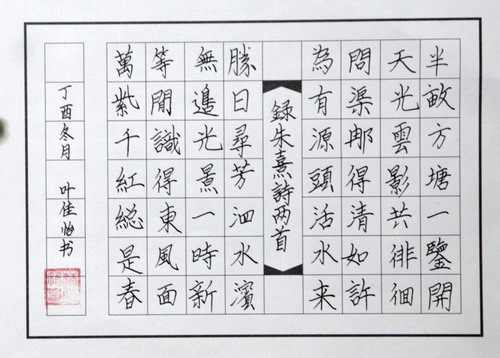 半畝方塘一鑒開
天光雲影共徘徊
問渠那得清如許
為有源頭活水来
録朱熹詩两首
勝日尋芳泗水濱
無邊光景一時新
等閒識得東風面
萬紫千紅総是春
丁酉冬月 叶佳书